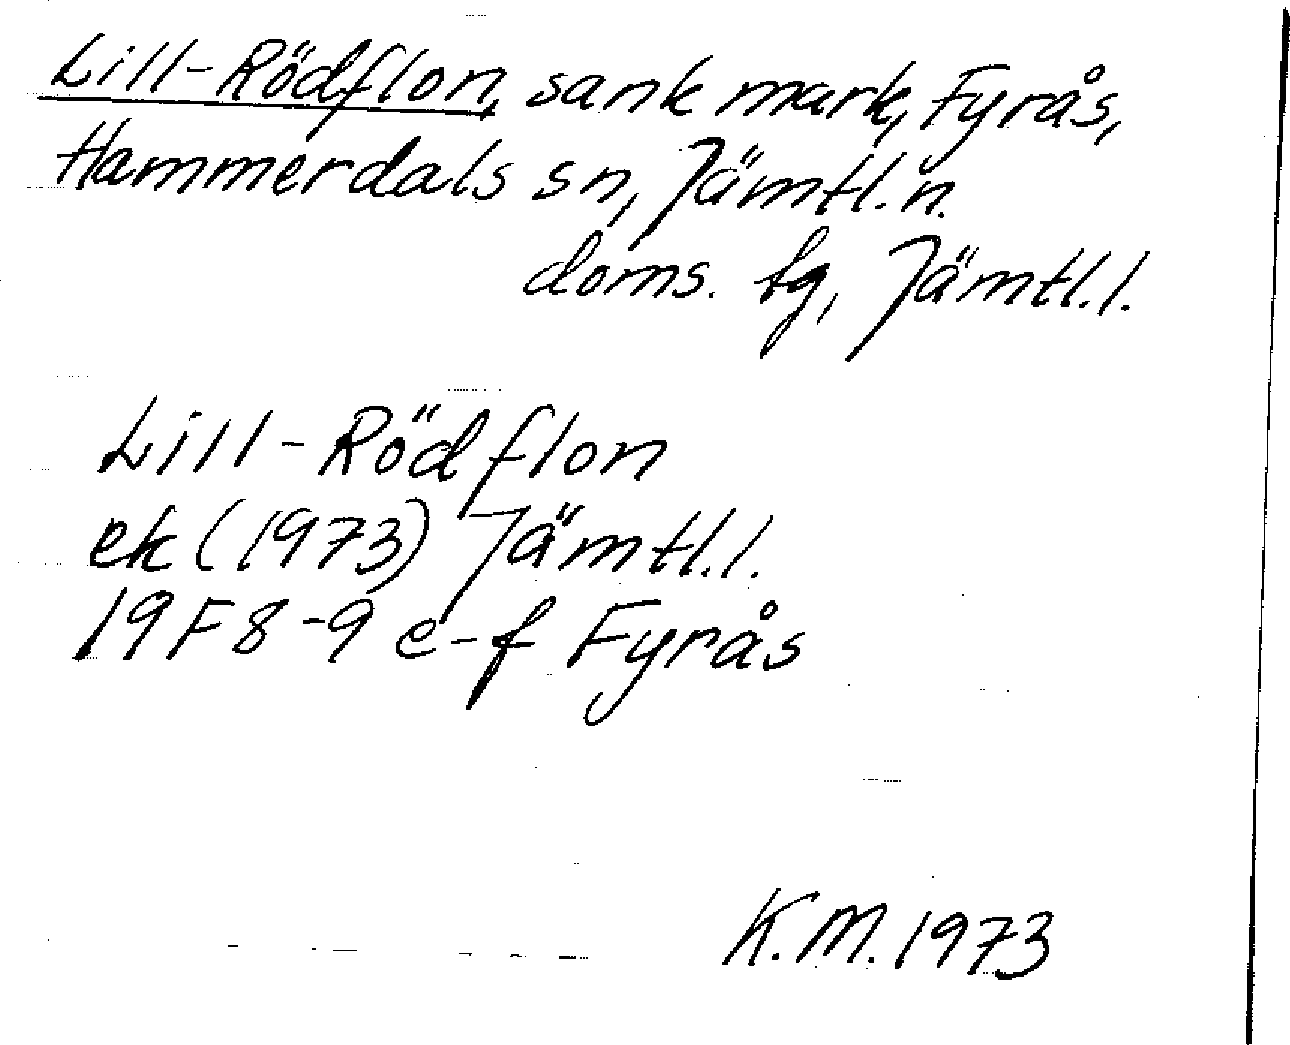 Lill-Rödflon, sank mark, Fyrås,
Hammerdals sn, Jämtl. n.
doms. fg, Jämtl. l.
Lill-Rödflon
ek (1973) Jämtl. l.
19F 8-9 e-f Fyrås
K.M. 1973